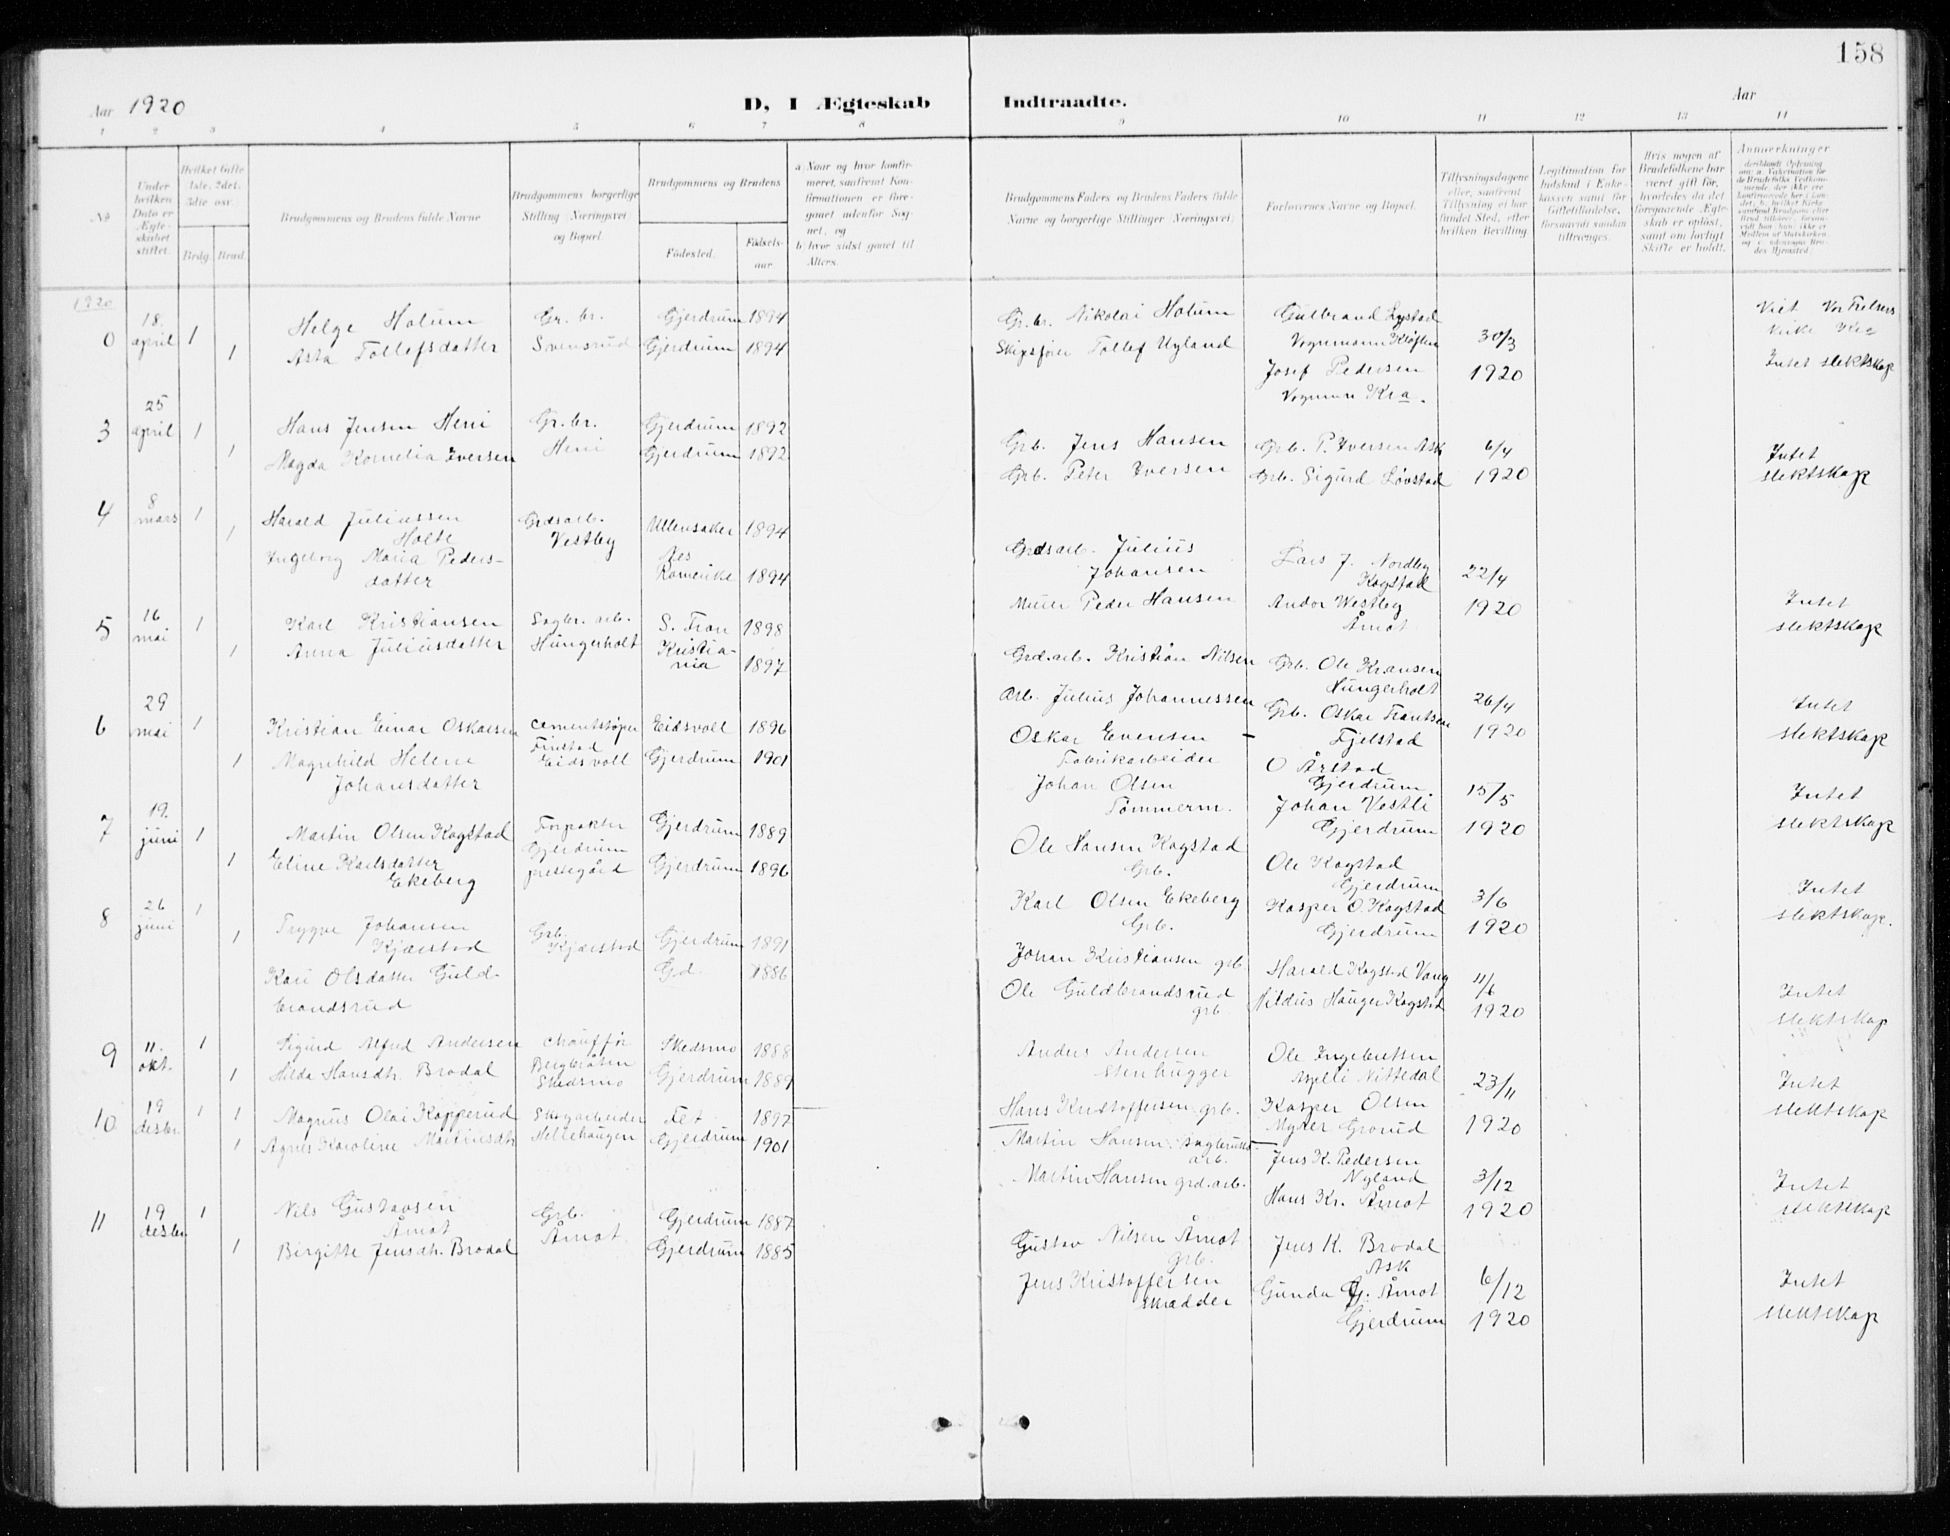 158
Aar 1920
D, I Ægteskab Indtraadte.
Aar
1 2 3 4 5 6 7 8 9 10 11 12 13 14
No.
Under hvilken Dato er Ægteskabet stiftet.
Hvilket Gifte 1ste, 2det, 3die osv.
Brdg. Brud.
Brudgommens og Brudens fulde Navne
Brudgommens borgerlige Stilling (Næringsvei) og Bopæl.
Brudgommens og Brudens
Fødested.
Fødselsaar
a) Naar og hvor konfirmeret, saafremt Konfirmationen er foregaaet udenfor Sognet, og
b) hvor sidst gaaet til Alters.
Brudgommens Faders og Brudens Faders fulde Navne og borgerlige Stillinger (Næringsvei)
Forlovernes Navne og Bopæl.
Tillysningsdagene eller, saafremt Tillysning ei har fundet Sted, efter hvilken Bevilling
Legitimation for Indskud i Enkekassen samt for Giftetilladelse, forsaavidt saadan tiltrænges.
Hvis nogen af Brudefolkene har været gift før, hvorledes da det foregaaende Ægteskab er opløst, samt om lovligt Skifte er holdt.
Anmærkninger
1920
0 18. april 1 Helge Holum Gr. br. Gjerdrum 1894 Gr. br. Nikolai Holum Gulbrand Lystad
1 Asta Tollefsdatter Svensrud Gjerdrum 1894 Skipsfører Tollef Uyland Vognmann Kløften 30/3
Josef Pedersen 1920 Intet slektskap
Vognmann Kra.
3 25 april 1 Hans Jensen Heni Gr. br. Gjerdrum 1892 Grb. Jens Hansen Grb. P. Iversen Ask 6/4 Intet
1 Magda Kornelia Iversen Heni Gjerdrum 1892 Grb. Peter Iversen Grb. Sigurd Løvstad 1920 slektskap
4 8 mars 1 Harald Juliussen Grdsarb. Ullensaker 1894
1 Holte Vestby
Ingeborg Maria Peders- Nes Grdsarb. Julius Lars J. Nordby
datter Romerike 1894 Johansen Kogstad 22/4
Peder Hansen Andor Westby 1920 Intet
Åmot slektskap
5 16 mai 1 Karl Kristiansen Sagbr. arb. S. Fron 1898
1 Anna Juliusdatter Hungerholt Kristia-
nia 1897 Grd.arb. Kristian Nilsen Grb. Ole Kransen
Hungerholt
Arb. Julius Johannessen Grb. Oskar Frantsen 26/4 Intet
Fjelstad 1920 slektskap
6 29 mai 1 Kristian Einar Oskarsen Cementstøper Eidsvoll 1896 Oskar Evensen
Finstad Fabrikarbeider O Årstad
1 Magnhild Helene Eidsvoll Gjerdrum 1901 Gjerdrum.
Johansdatter Johan Olsen Johan Vestli 15/5 Intet
Tømmerm. Gjerdrum 1920 slektskap
7 19. juni 1 Martin Olsen Kogstad Forpakter Gjerdrum 1889 Ole Hansen Kogstad Ole Kogstad
1 Eline Karlsdatter Gjerdrum Grb. Gjerdrum
Ekeberg prestegård Gjerdrum 1896 Karl Olsen Ekeberg Kasper O. Kogstad 3/6 Intet
Grb. Gjerdrum 1920 slektskap.
8 26 juni 1 Trygve Johansen Grb.
1 Kjærstad Kjærstad Gjerdrum 1891 Johan Kristiansen grb Harald Kogstad Vang 11/6
Kari Olsdatter Guld- Gd. 1886 Ole Guldbrandsrud Nildus Hauger Kogstad 1920 Intet
brandsrud grb. slektskap
9 11. okt. 1 Sigurd Alfred Andersen Chauffør Skedsmo 1888 Anders Andersen Ole Ingebretsen
Bergbråten Stenhugger Nittedal 23/11 Intet
1 Hilda Hansdtr. Brodal Skedsmo Gjerdrum 1889 Hans Kristoffersen grb. Kasper Olsen 1920 slektskap
Myrer Grorud
10 19 desbr 1 1 Magnus Olai Kopperud Skogarbeider Fet 1897 Martin Hansen Sagbruks- Jens K. Pedersen
arb. Nyland
1 Agnes Karoline Martinsdtr Hellehaugen Gjerdrum 1901 Martin Hansen grd.arb. Hans Kr. Åmot 3/12 Intet
1920 slektskap
11 19 desbr 1 Nils Gustavsen Grb. Gjerdrum 1887 Gustav Nilsen Åmot Jens K. Brodal
Åmot Åmot grb. Ask
1 Birgitte Jensdtr. Brodal Gjerdrum 1885 Jens Kristoffersen Gunda G. Åmot 6/12 Intet
Skrædder Gjerdrum 1920 slektskap